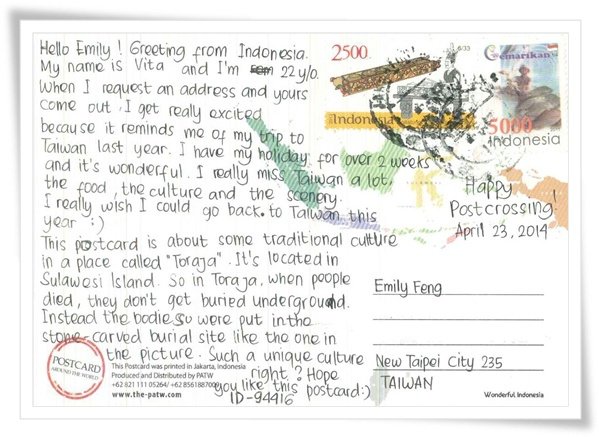 Hello Emily! Greeting from Indonesia.
My name is Vita and I'm 22 y/o.
When I request an address and yours
come out, I get really excited
because it reminds me of my trip to
Taiwan last year. I have my holiday for over 2 weeks
and it's wonderful. I really miss Taiwan a lot,
the food, the culture and the scenery.
I really wish I could go back to Taiwan this
year :)
This postcard is about some traditional culture
in a place called "Toraja". It's located in
Sulawesi Island. So in Toraja, when people
died, they don't got buried underground.
Instead the bodies were put in the
stone-carved burial site like the one in
the picture. Such a unique culture
right? Hope
you like this postcard:)
ID-94416
POSTCARD
AROUND THE WORLD
This Postcard was printed in Jakarta, Indonesia
Produced and Distributed by PATW
+62 821 111 05264/ +62 8561887000
www.the-patw.com
2500
Indonesia
6/33
Gemarikan
5000
Indonesia
Happy
Postcrossing!
April 23, 2014
Emily Feng
New Taipei City 235
TAIWAN
Wonderful Indonesia